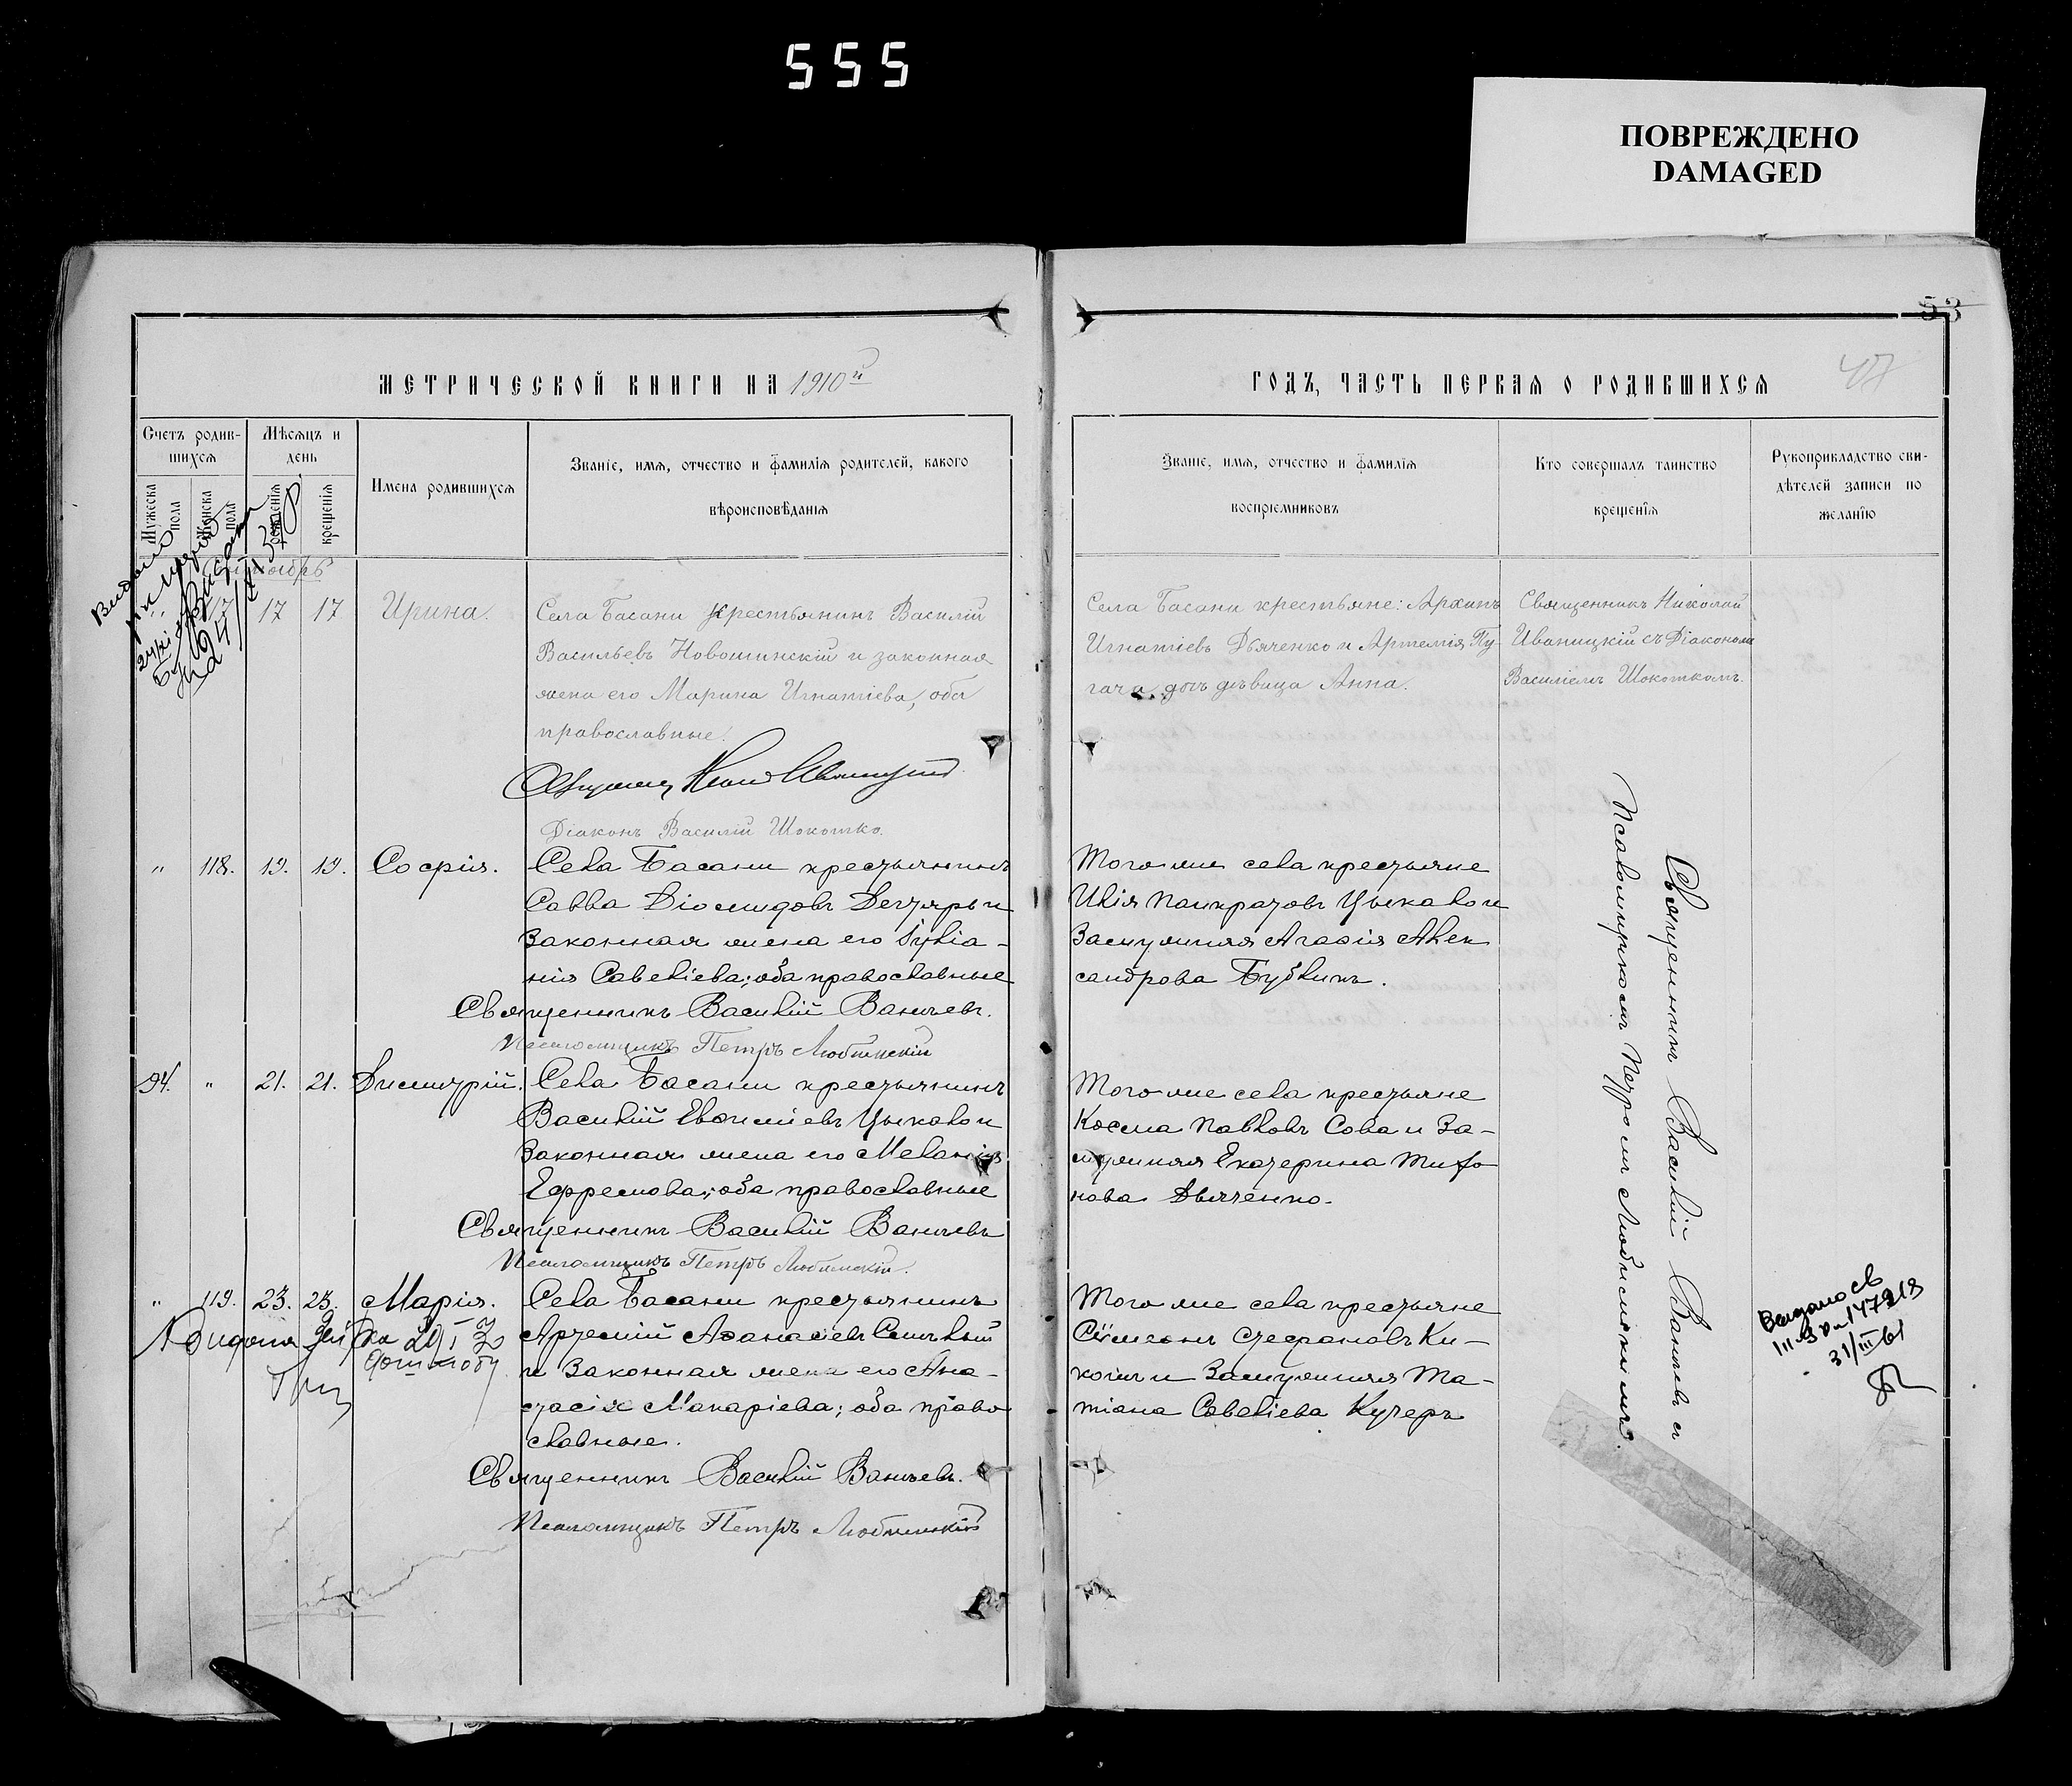 555
ПОВРЕЖДЕНО
DAMAGED
53
47
МЕТРИЧЕСКОЙ КНИГИ НА 1910й
Счетъ родив-
шихся
Мѣсяцъ и
день
Имена родившихся
Званіе, имя, отчество и фамилія родителей, какого
вѣроисповѣданія
Мужеска
пола
Женска
пола
рожденія
крещенія
17 17 Ирина.
Села Басани крестьянинъ Василій
Васильевъ Новошинскій и законная
жена его Марина Игнатіева, оба
православные.
Діаконъ Василій Шокотко.
" 118. 19. 19. Софія.
Села Басани крестьянинъ
Савва Діомидовъ Дегтярь и
Законная жена его Іуліа-
нія Савеліева; оба православные
Священникъ Василій Ваничевъ.
Псаломщикъ Петръ Любимскій
94. " 21. 21. Димитрій.
Села Басани крестьянинъ
Василій Евфиміевъ Цыкало и
Законная жена его Меланія
Ефремова; оба православные
Священникъ Василій Ваничевъ
Псаломщикъ Петръ Любимскій.
" 119. 23. 23. Марія.
Села Басани крестьянинъ
Артемій Афанасіевъ
и Законная жена его Ана-
стасія Макаріева; оба право
славные.
Священникъ Василій Ваничевъ.
Псаломщикъ Петръ Любимскій
ГОДЪ, ЧАСТЬ ПЕРВАЯ О РОДИВШИХСЯ
Званіе, имя, отчество и фамилія
воспріемниковъ
Кто совершалъ таинство
крещенія
Рукоприкладство сви-
дѣтелей записи по
желанію
Села Басани крестьяне: Архипъ
Игнатіевъ Дьяченко и Артемія Пу-
гача дочь дѣвица Анна.
Священникъ Николай
Иваницкій съ Діакономъ
Василіемъ Шокоткомъ.
Того же села крестьяне
Илія Панкратовъ Цыкало и
Замужняя Агафія Алек
сандрова Бубликъ.
Того же села крестьяне
Косма Павловъ Сова и За-
мужняя Екатерина
нова Дьяченко.
Того же села крестьяне
Сімеонъ Стефановъ
и Замужняя Та-
тіана Савеліева Кучеръ
Священникъ Василій Ваничевъ съ
Псаломщикомъ Петромъ Любимскимъ.
Видано св
31/III 61